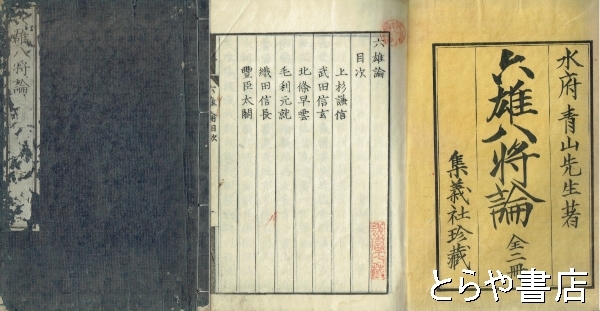 六雄八将論
六雄論
目次
上杉謙信
武田信玄
北條早雲
毛利元就
織田信長
豐臣太閤
六雄論目次
水府 青山先生著
六雄八将論
全二冊
集義社珍藏
とらや書店